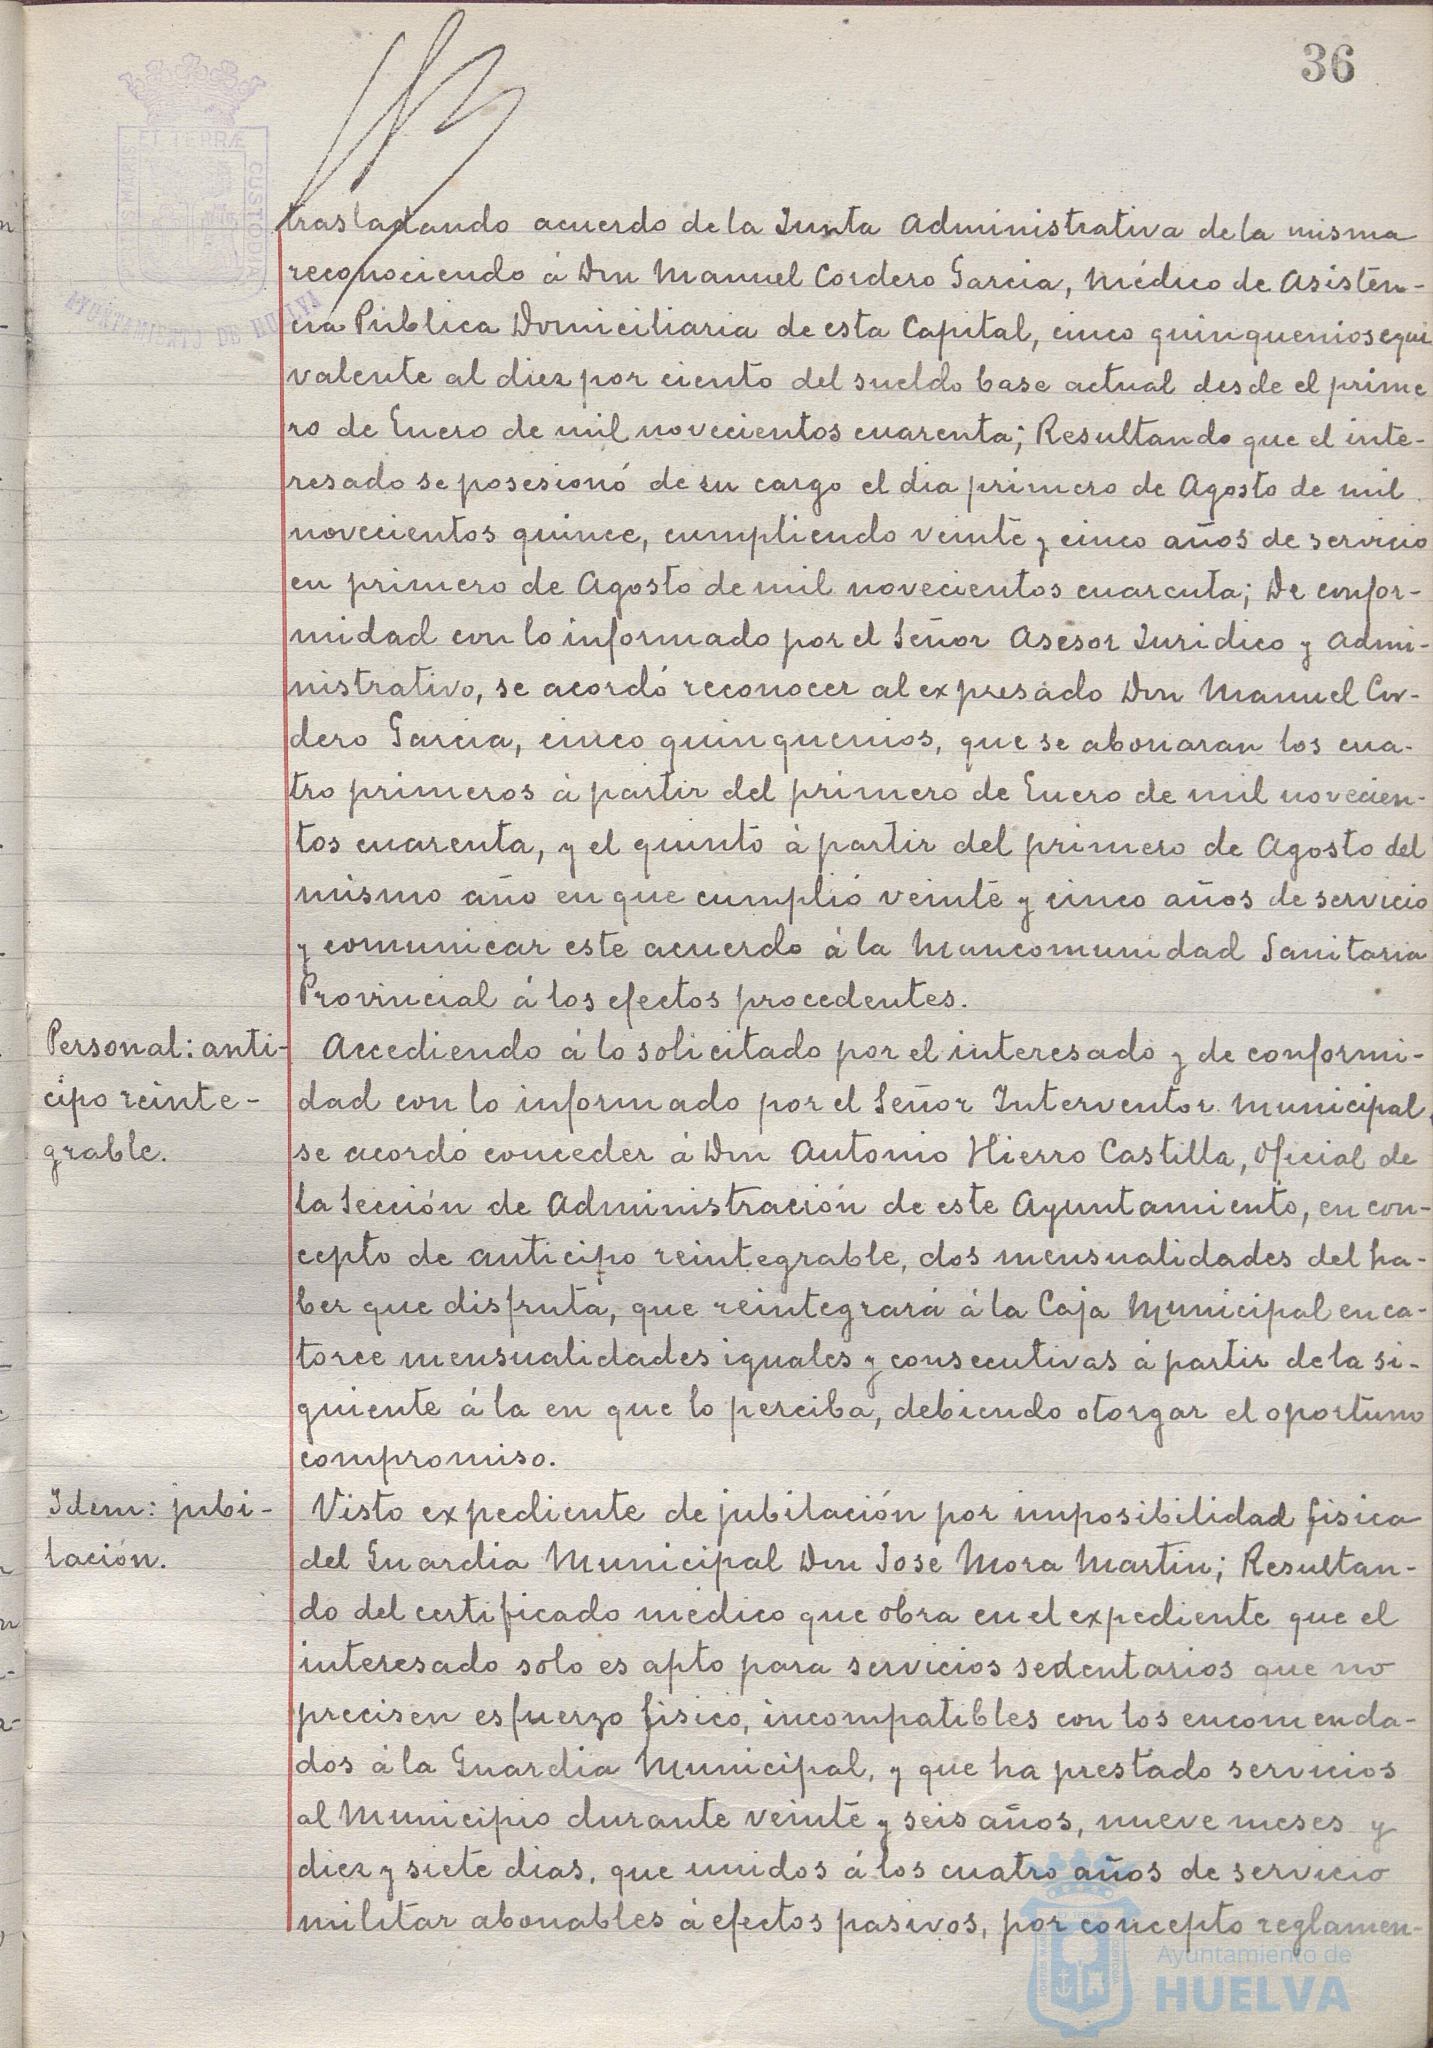 36
trasladando acuerdo de la Junta Administrativa de la misma
reconociendo á Don Manuel Cordero Garcia, Médico de Asisten-
cia Publica Domiciliaria de esta Capital, cinco quinquenios equi
valente al diez por ciento del sueldo base actual desde el prime
ro de Enero de mil novecientos cuarenta; Resultando que el inte-
resado se posesionó de su cargo el dia primero de Agosto de mil
novecientos quince, cumpliendo veinte y cinco años de servicio
en primero de Agosto de mil novecientos cuarenta; De confor-
midad con lo informado por el Señor Asesor Juridico y Admi-
nistrativo, se acordó reconocer al expresado Don Manuel Cor-
dero Garcia, cinco quinquenios, que se abonaran los cua-
tro primeros á partir del primero de Enero de mil novecien-
tos cuarenta, y el quinto á partir del primero de Agosto del
mismo año en que cumplió veinte y cinco años de servicio
y comunicar este acuerdo á la Mancomunidad Sanitaria
Provincial á los efectos procedentes.
Personal: anti-
cipo reinte-
grable.
Accediendo á lo solicitado por el interesado y de conformi-
dad con lo informado por el Señor Interventor Municipal,
se acordó conceder á Don Antonio Hierro Castilla, Oficial de
la Sección de Administración de este Ayuntamiento, en con-
cepto de anticipo reintegrable, dos mensualidades del ha-
ber que disfruta, que reintegrará á la Caja Municipal en ca-
torce mensualidades iguales y consecutivas á partir de la si-
guiente á la en que lo perciba, debiendo otorgar el oportuno
compromiso.
Idem: jubi-
lación.
Visto expediente de jubilación por imposibilidad fisica
del Guardia Municipal Don José Mora Martin; Resultan-
do del certificado médico que obra en el expediente que el
interesado solo es apto para servicios sedentarios que no
precisen esfuerzo fisico, incompatibles con los encomenda-
dos á la Guardia Municipal, y que ha prestado servicios
al Municipio durante veinte y seis años, nueve meses y
diez y siete dias, que unidos á los cuatro años de servicio
militar abonables á efectos pasivos, por concepto reglamen-
ET TERRÆ
CUSTODIA
AYUNTAMIENTO DE HUELVA
Ayuntamiento de
HUELVA